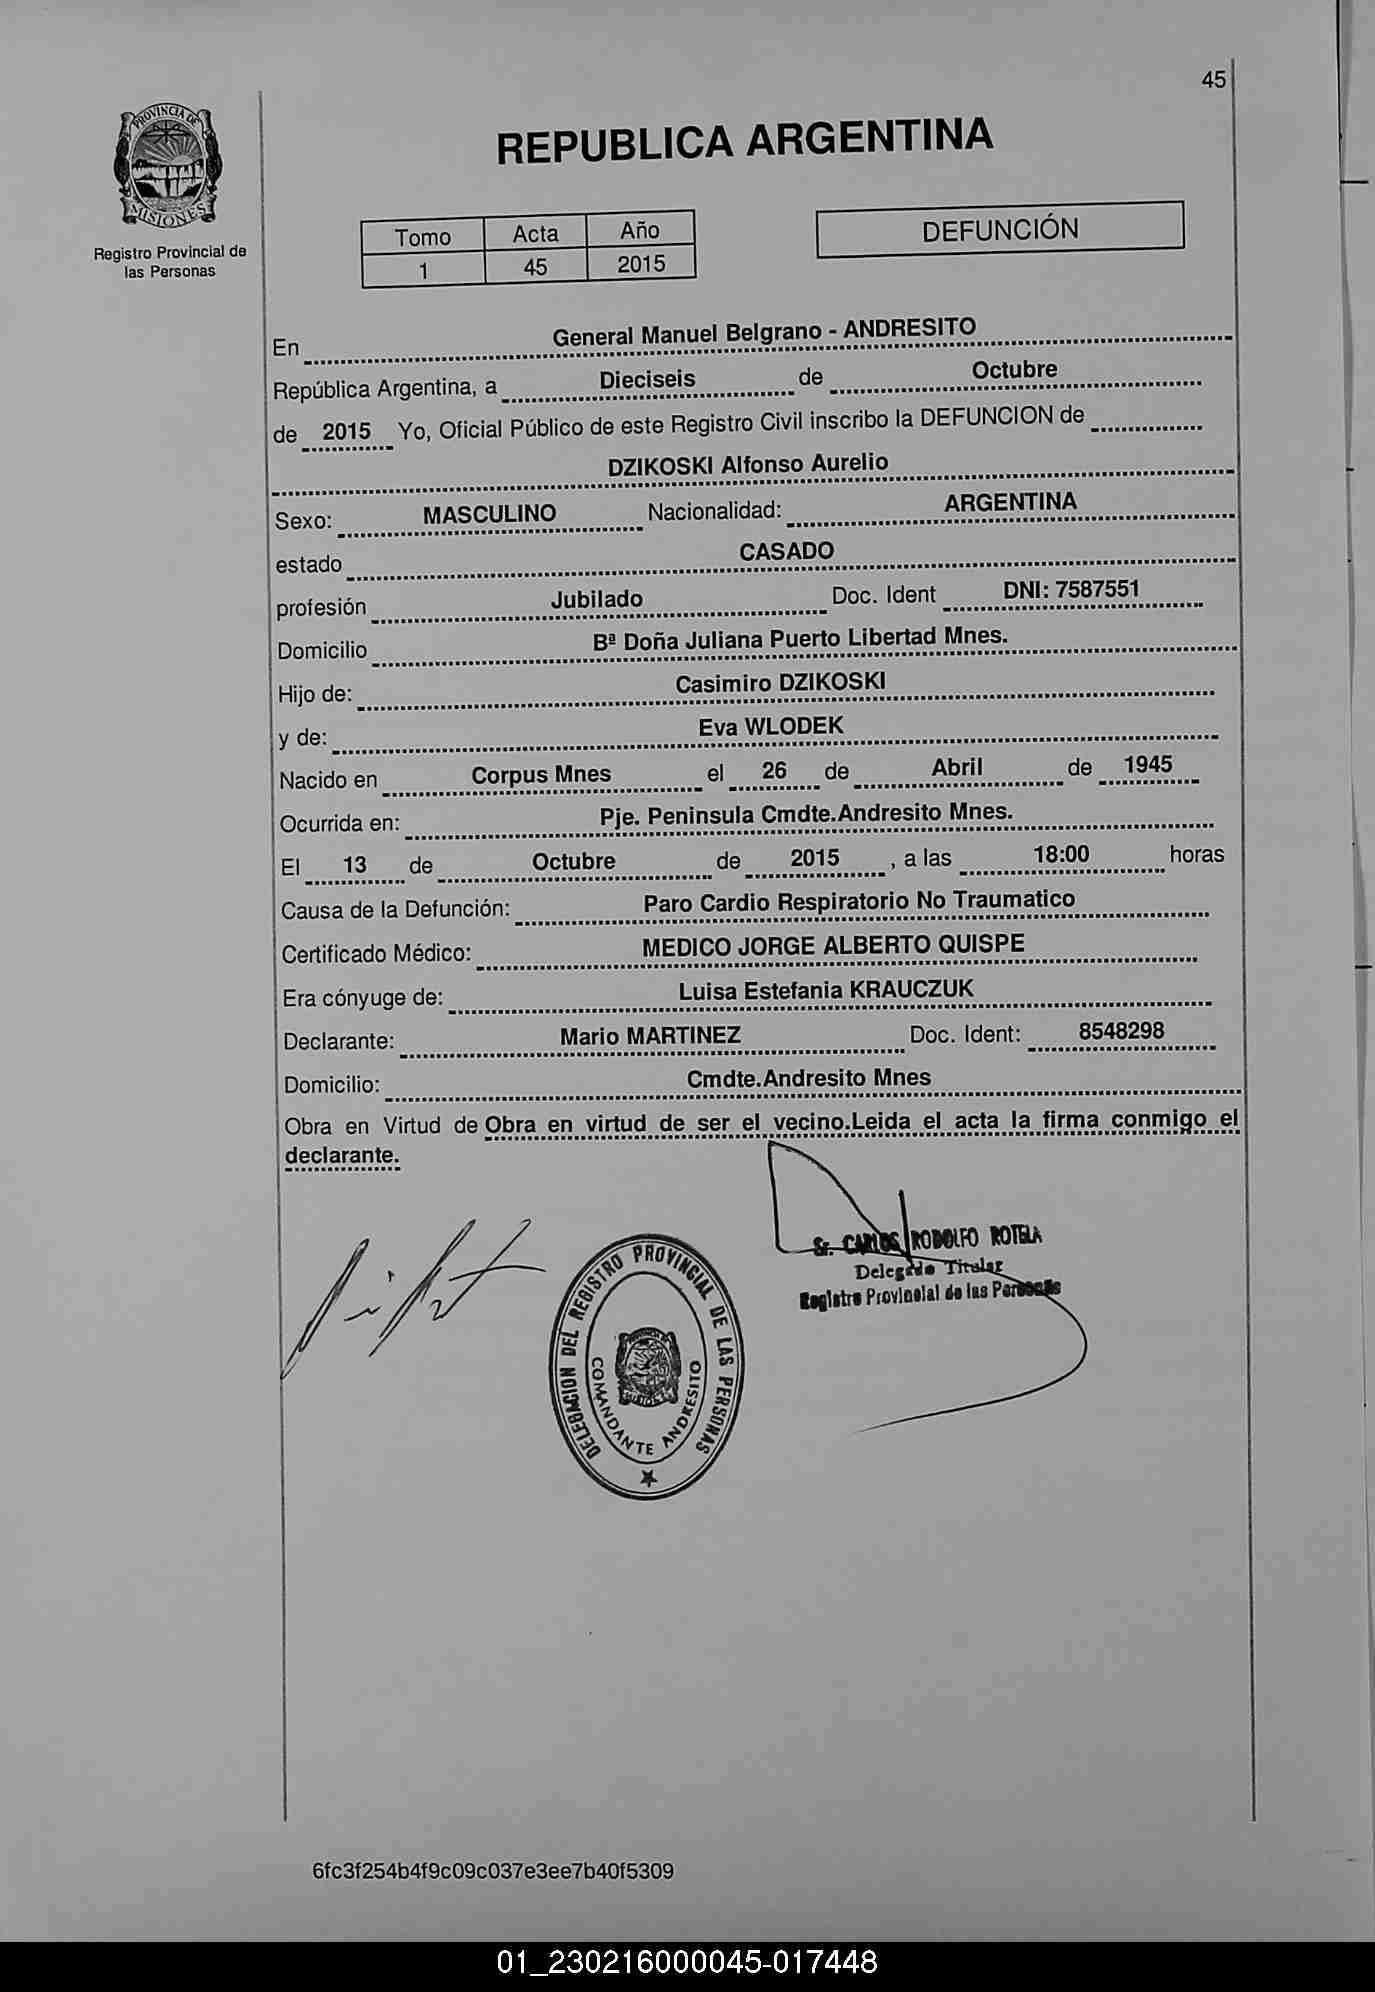 45
PROVINCIA DE
MISIONES
Registro Provincial de
las Personas
REPUBLICA ARGENTINA
Tomo Acta Año
1 45 2015
DEFUNCIÓN
En General Manuel Belgrano - ANDRESITO
República Argentina, a Dieciseis de Octubre
de 2015 Yo, Oficial Público de este Registro Civil inscribo la DEFUNCION de
DZIKOSKI Alfonso Aurelio
Sexo: MASCULINO Nacionalidad: ARGENTINA
estado CASADO
profesión Jubilado Doc. Ident DNI: 7587551
Domicilio Bª Doña Juliana Puerto Libertad Mnes.
Hijo de: Casimiro DZIKOSKI
y de: Eva WLODEK
Nacido en Corpus Mnes el 26 de Abril de 1945
Ocurrida en: Pje. Peninsula Cmdte.Andresito Mnes.
El 13 de Octubre de 2015 , a las 18:00 horas
Causa de la Defunción: Paro Cardio Respiratorio No Traumatico
Certificado Médico: MEDICO JORGE ALBERTO QUISPE
Era cónyuge de: Luisa Estefania KRAUCZUK
Declarante: Mario MARTINEZ Doc. Ident: 8548298
Domicilio: Cmdte.Andresito Mnes
Obra en Virtud de Obra en virtud de ser el vecino.Leida el acta la firma conmigo el
declarante.
Sr. CARLOS RODOLFO ROTELA
Delegado Titular
Registro Provincial de las Personas
DELEGACION DEL REGISTRO PROVINCIAL DE LAS PERSONAS
COMANDANTE ANDRESITO
6fc3f254b4f9c09c037e3ee7b40f5309
01_230216000045-017448